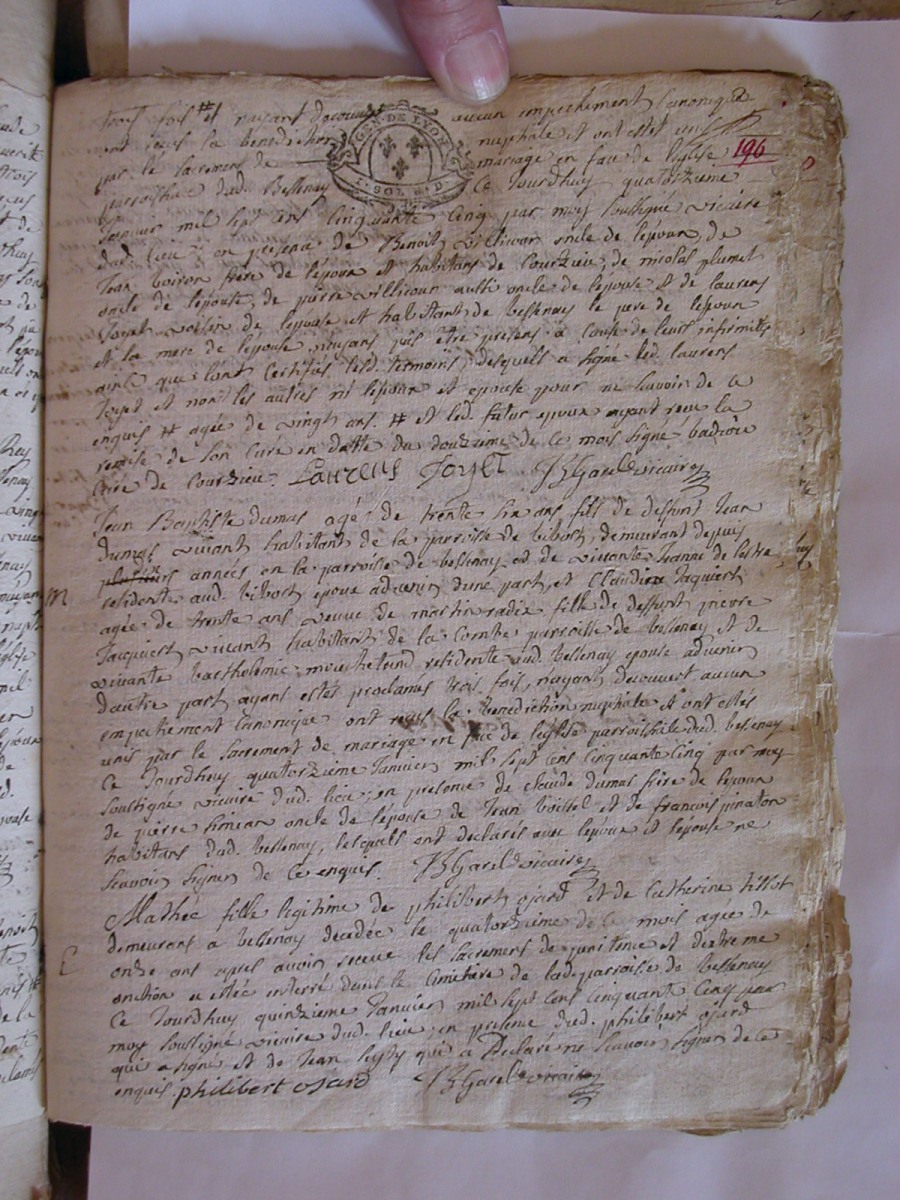 trois fois # et nayant decouvert aucun empechement Canonique
ont reçus la benediction nuptiale et ont estet unis
par le sacrement de mariage en face de leglise 196
GEN DE LYON
SOL D
parroissiale dud. Bessenay Ce Jourdhuy quatorzieme
Janvier mil sept cens Cinquante Cinq par moy soussigné vicaire
dud. lieu en presence de Benoit villivon oncle de lepoux, de
Jean voiron frere de lepoux et habitans de Courzieu, de nicolas plumet
oncle de lepouse, de pierre villivon aussi oncle de lepouse et de laurens
Joyet voisin de lepouse et habitant de bessenay le pere de lepoux
et la mere de lepouse nayans pus être presens a cause de leurs infirmités
ainsi que lont certifiés lesd. temoins, desquels a signé led. laurens
Joyet et non les autres ni lepoux et epouse pour ne scavoir de ce
enquis # agée de vingt ans. # et led. futur epoux ayant reçu la
remise de son Curé en datte du douzieme de ce mois signé
Curé de Courzieu. Laurens Joyet JBGarel vicaire
Jean Baptiste dumas agé de trente six ans fils de deffunt Jean
dumas vivant habitant de la parroisse de bibost, demeurant depuis
plusieurs années en la parroisse de bessenay et de vivante Jeanne de lestra
m residente aud. bibost epoux advenir dune part, et Claudine Jaquiert
agée de trente ans veuve de martin radix fille de deffunt pierre
Jacquiert vivant habitant de la Combe parroisse de bessenay et de
vivante barthelemie residente aud. bessenay epouse advenir
dautre part ayant estés proclamés trois fois, nayant decouvert aucun
empechement Canonique ont reçus la benediction nuptiale et ont estés
unis par le sacrement de mariage en face de leglise parroissiale dud. bessenay
Ce Jourdhuy quatorzieme Janvier mil sept cens Cinquante Cinq par moy
soussigné vicaire dud. lieu, en presence de claude dumas frere de lepoux
de pierre simean oncle de lepouse de Jean voissel et de francois pinaton
habitans dud. bessenay, lesquels ont declarés avec lepoux et lepouse ne
scavoir signer de ce enquis. JBGarel vicaire
Mathée fille legitime de philibert ojard et de Catherine tissot
demeurans a bessenay decedée le quatorzieme de ce mois agée de
E onze ans apres avoir receue les sacrement de penitence et dextreme
onction a estée enterré dans le Cimetiere de lad. parroisse de bessenay
Ce Jourdhuy quinzieme Janvier mil sept cens Cinquante Cinq par
moy soussigné vicaire dud. lieu, en presence dud. philibert ojard
qui a signé et de Jean qui a declaré ne scavoir signer de ce
enquis philibert osard JBGarel vicaire